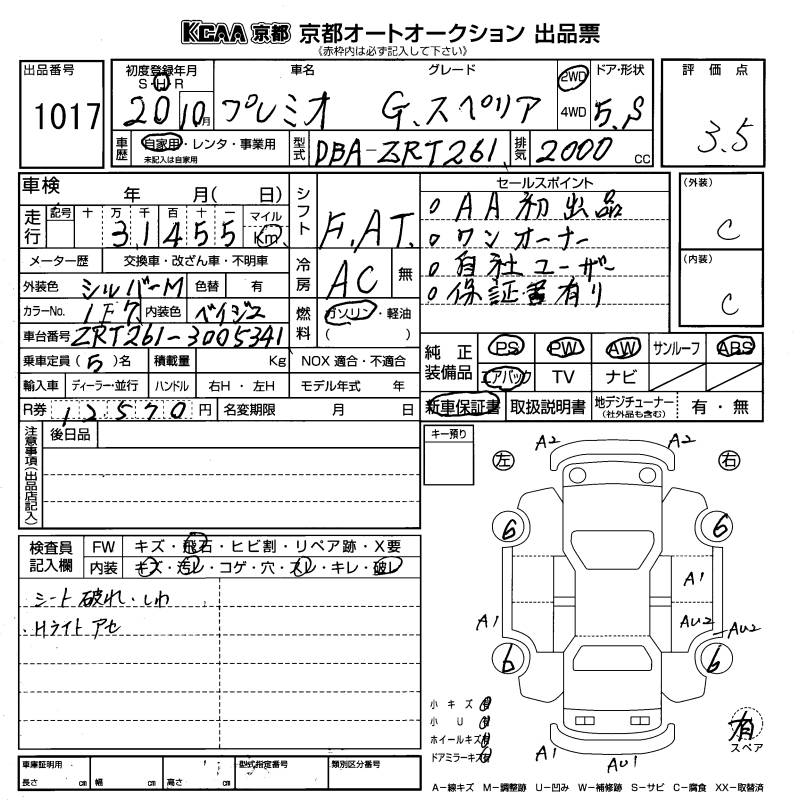 KCAA 京都 京都オートオークション 出品票
《赤枠内は必ず記入して下さい》
出品番号
1017
初度登録年月
S・H・R
20 10月
車名
プレミオ
グレード
G.スペリア
2WD
4WD
ドア・形状
5.S
車歴
自家用・レンタ・事業用
未記入は自家用
型式
DBA-ZRT261
排気
2000 CC
評価点
3.5
車検 年 月( 日)
走行 記号 十 万 千 百 十 一 マイル
31455 Km
メーター歴 交換車・改ざん車・不明車
外装色 シルバーM 色替 有
カラーNo. 1F7 内装色 ベイジュ
車台番号 ZRT261-3005341
シフト F.AT.
冷房 AC 無
燃料 ガソリン・軽油
( )
セールスポイント
○ AA初出品
○ ワンオーナー
○ 自社ユーザー
○ 保証書有り
(外装)
C
(内装)
C
乗車定員(5)名 積載量 Kg NOX適合・不適合
輸入車 ディーラー・並行 ハンドル 右H・左H モデル年式 年
R券 12570円 名変期限 月 日
純正装備品
PS PW AW サンルーフ ABS
エアバック TV ナビ
新車保証書 取扱説明書 地デジチューナー(社外品も含む) 有・無
注意事項(出品店記入)
後日品
キー預り
検査員記入欄
FW キズ・飛石・ヒビ割・リペア跡・X要
内装 キズ・汚レ・コゲ・穴・スレ・キレ・破レ
シート破れ・しわ
・Hライト アセ
左 右
A2 A2
6 6
A1
A1 AU2 AU2
6 6
A1 AU1
小キズ 有
小U 有
ホイールキズ 有
ドアミラーキズ 有
有
スペア
車庫証明用
長さ cm 幅 cm 高さ cm
型式指定番号
類別区分番号
A－線キズ M－調整跡 U－凹み W－補修跡 S－サビ C－腐食 XX－取替済